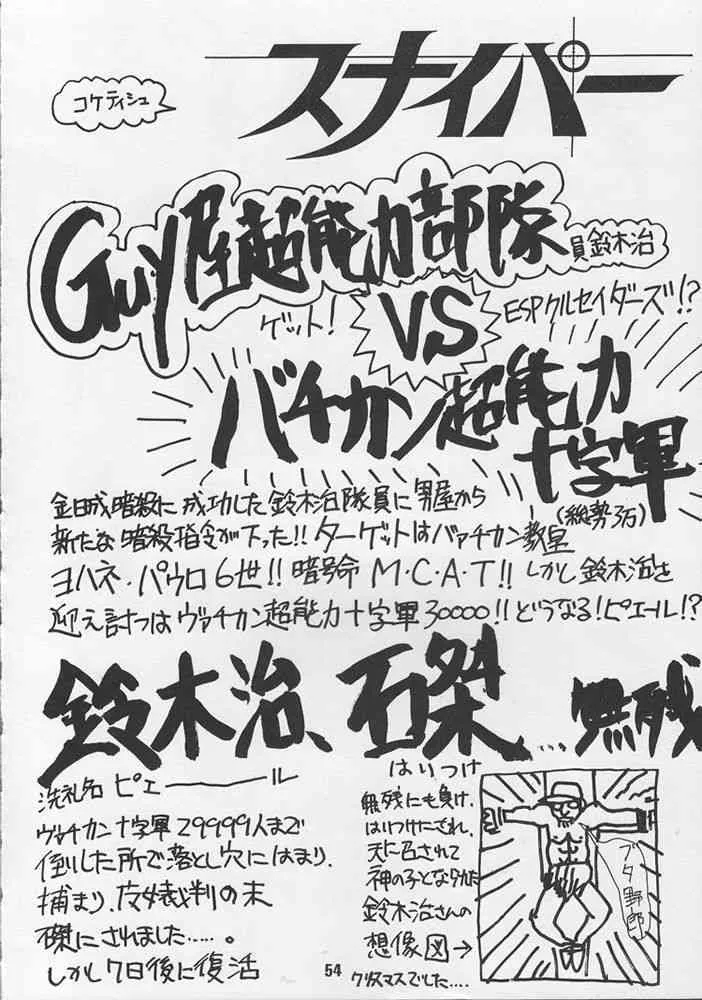 コケティッシュ
スナイパー
Guy屋超能力部隊
員鈴木治
ゲット!
VS
ESPクルセイダーズ!?
バチカン超能力
十字軍
(総勢3万)
金日成暗殺に成功した鈴木治隊員に男屋から
新たな暗殺指令が下った!!ターゲットはバァチカン教皇
ヨハネ・パウロ6世!!暗号命M・C・A・T!!しかし鈴木治を
迎え討つはヴァチカン超能力十字軍30000!!どうなる!ピエール!?
鈴木治、石桀…無残
はりつけ
洗礼名 ピエ――ル
ヴァチカン十字軍29999人まで
倒した所で落とし穴にはまり、
捕まり、魔女裁判の末
磔にされました……。
しかし7日後に復活
無残にも負け、
はりつけにされ、
天に召されて
神の子となった
鈴木治さんの
想像図→
クリスマスでした….
ブタ野郎
54